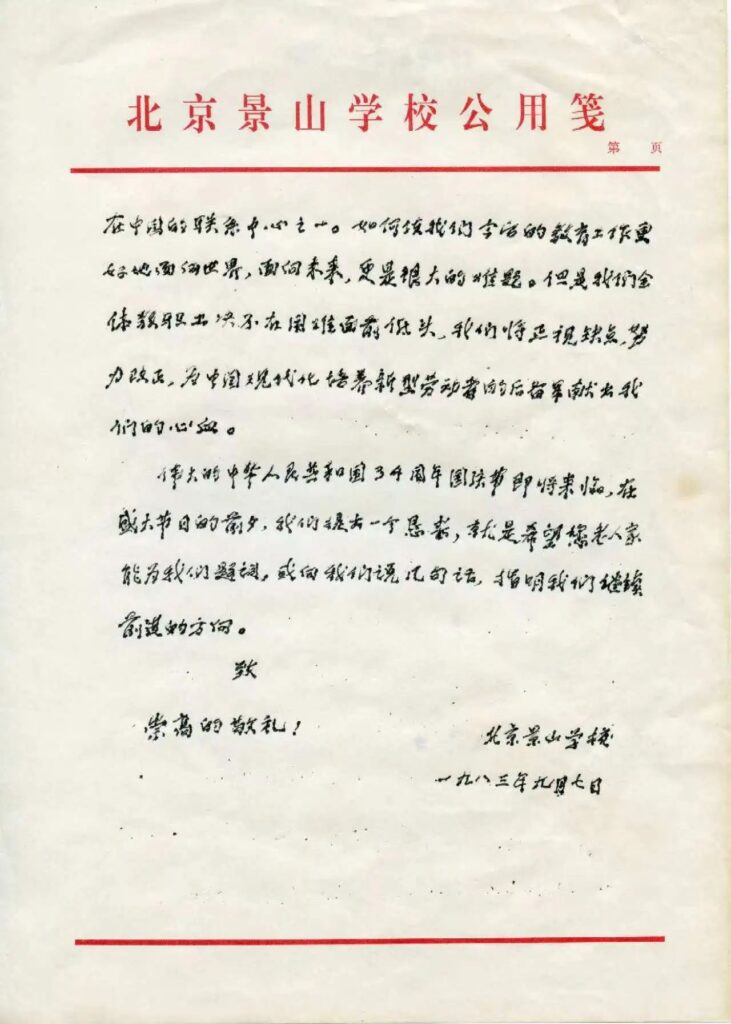 北京景山学校公用笺
第 页
在中国的联系中心之一。如何使我们学校的教育工作更
好地面向世界，面向未来，更是很大的难题。但是我们全
体教职工决不在困难面前低头，我们将正视缺点，努
力改正，为中国现代化培养新型劳动者的后备军献出我
们的心血。
伟大的中华人民共和国34周年国庆节即将来临，在
盛大节日的前夕，我们提出一个恳求，就是希望您老人家
能为我们题词，或向我们说几句话，指明我们继续
前进的方向。
致
崇高的敬礼！
北京景山学校
一九八三年九月七日